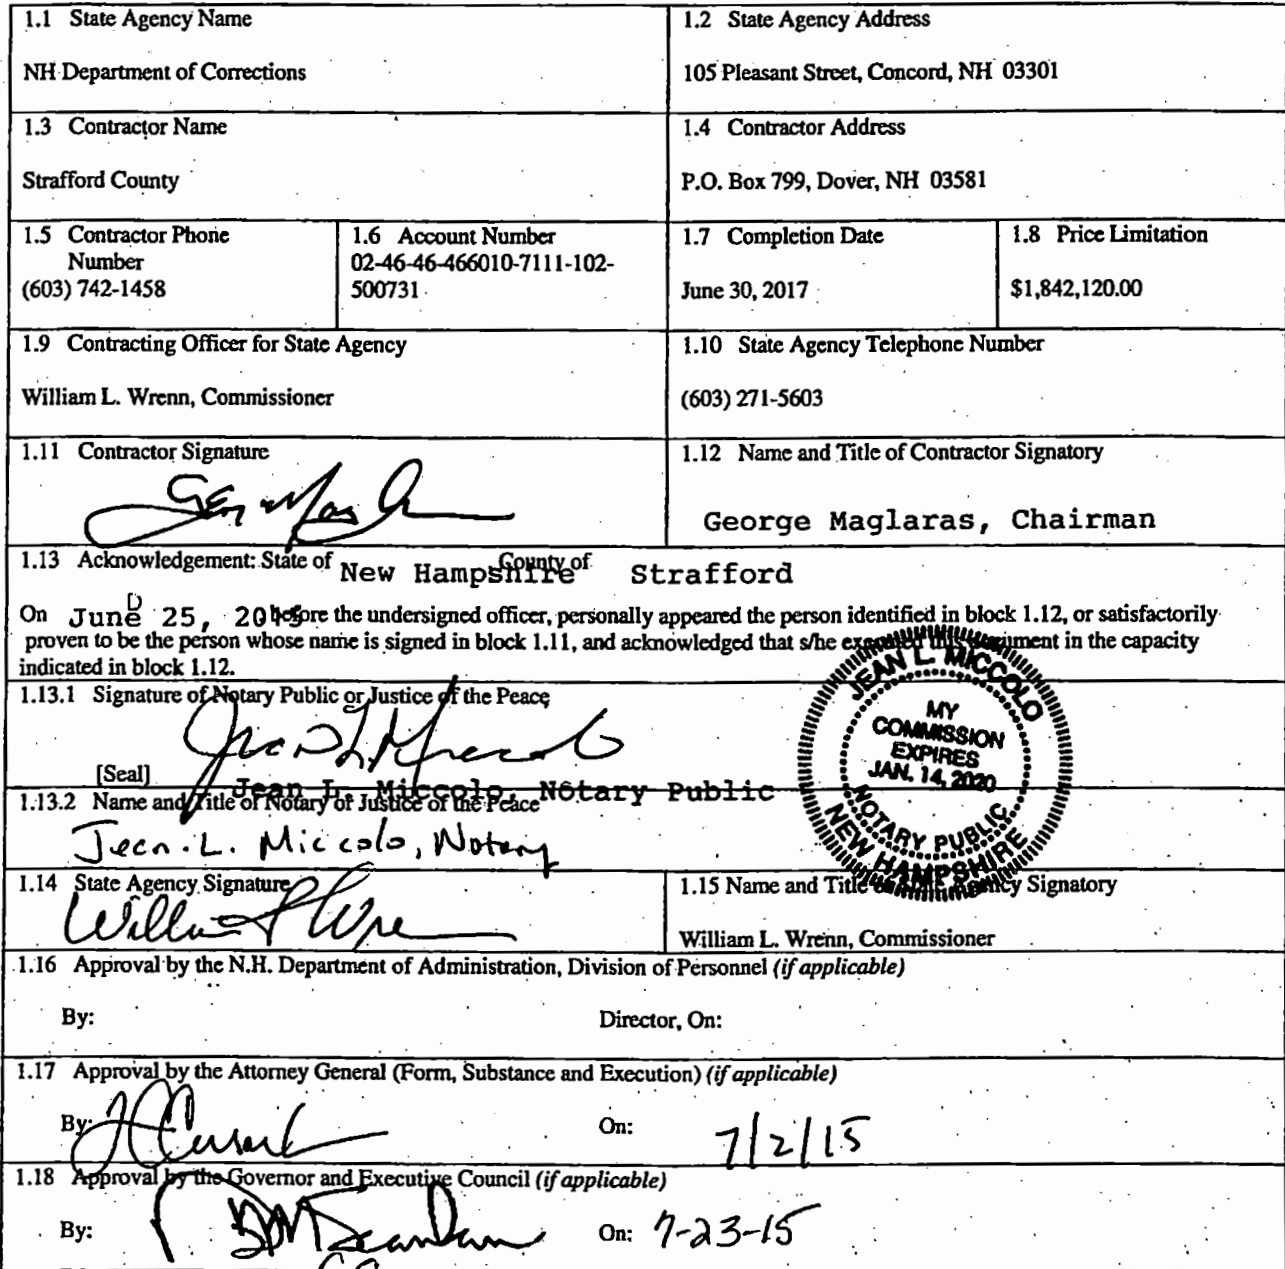 1.1 State Agency Name
NH Department of Corrections
1.2 State Agency Address
105 Pleasant Street, Concord, NH 03301
1.3 Contractor Name
Strafford County
1.4 Contractor Address
P.O. Box 799, Dover, NH 03581
1.5 Contractor Phone
Number
(603) 742-1458
1.6 Account Number
02-46-46-466010-7111-102-
500731
1.7 Completion Date
June 30, 2017
1.8 Price Limitation
$1,842,120.00
1.9 Contracting Officer for State Agency
William L. Wrenn, Commissioner
1.10 State Agency Telephone Number
(603) 271-5603
1.11 Contractor Signature
1.12 Name and Title of Contractor Signatory
George Maglaras, Chairman
1.13 Acknowledgement: State of New Hampshire County of Strafford
On June 25, 2015 before the undersigned officer, personally appeared the person identified in block 1.12, or satisfactorily
proven to be the person whose name is signed in block 1.11, and acknowledged that s/he executed this document in the capacity
indicated in block 1.12.
1.13.1 Signature of Notary Public or Justice of the Peace
[Seal]
Jean L. Miccolo, Notary Public
JEAN L. MICCOLO
MY
COMMISSION
EXPIRES
JAN. 14, 2020
NOTARY PUBLIC
NEW HAMPSHIRE
1.13.2 Name and Title of Notary or Justice of the Peace
Jean L. Miccolo, Notary
1.14 State Agency Signature
1.15 Name and Title Agency Signatory
William L. Wrenn, Commissioner
1.16 Approval by the N.H. Department of Administration, Division of Personnel (if applicable)
By: Director, On:
1.17 Approval by the Attorney General (Form, Substance and Execution) (if applicable)
By: On: 7/2/15
1.18 Approval by the Governor and Executive Council (if applicable)
By: On: 7-23-15